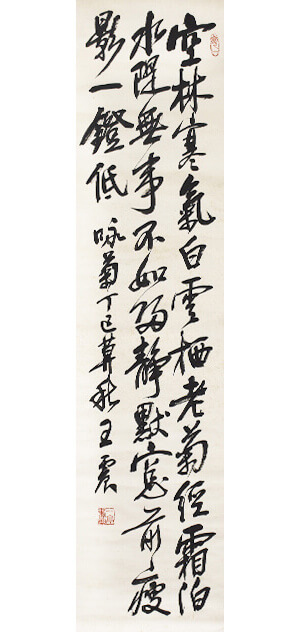 空林寒氣白雲栖老菊經霜泊
水隄無事不如歸靜默窓前瘦
影一鐙低 咏菊丁巳莫秋王震